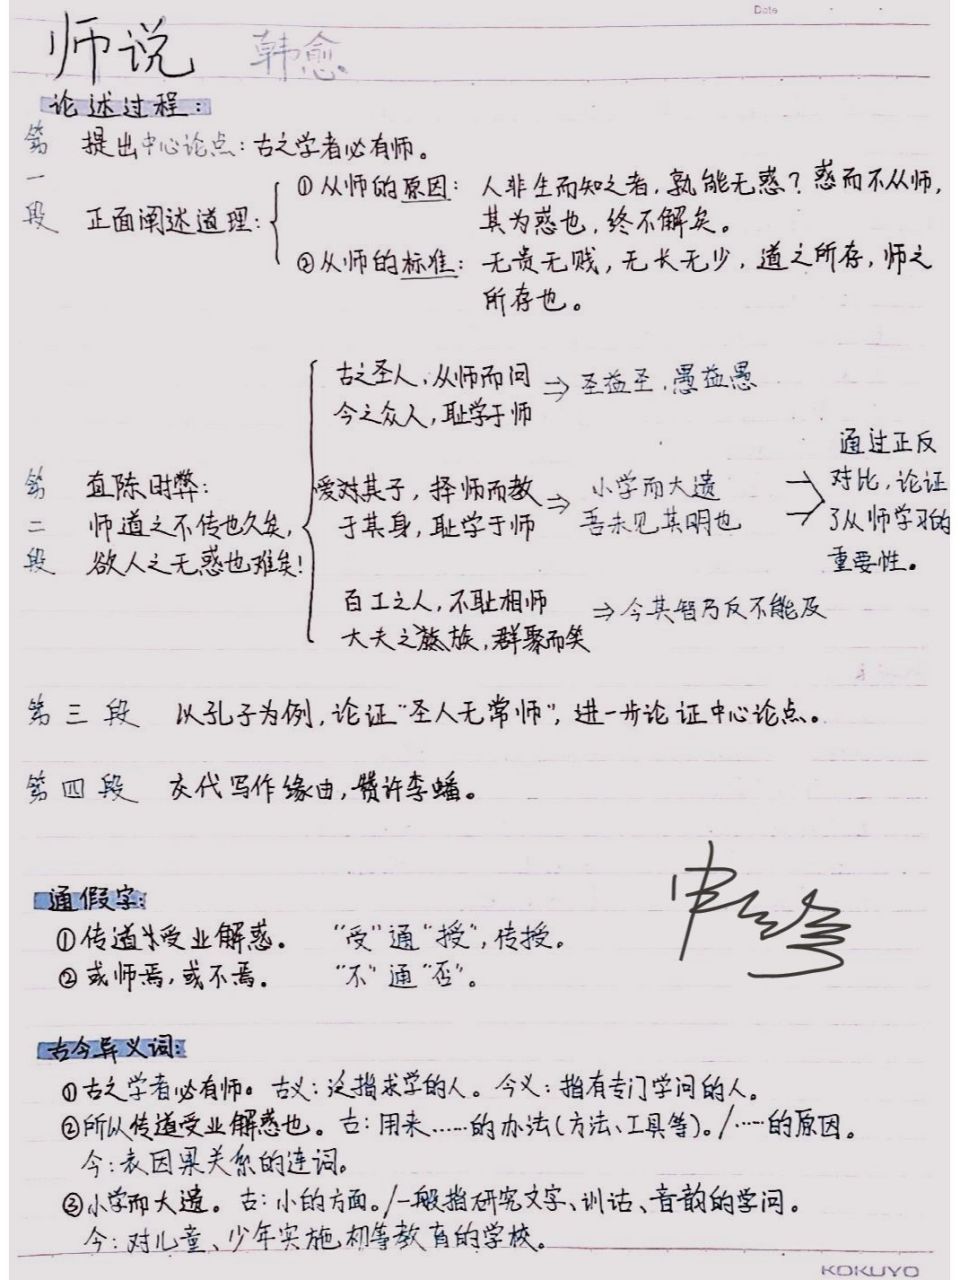 Date
师说 韩愈
论述过程:
第一段
提出中心论点:古之学者必有师。
正面阐述道理:
①从师的原因: 人非生而知之者,孰能无惑?惑而不从师,
其为惑也,终不解矣。
②从师的标准: 无贵无贱,无长无少,道之所存,师之
所存也。
第二段
直陈时弊:
师道之不传也久矣,
欲人之无惑也难矣!
古之圣人,从师而问
今之众人,耻学于师
⇒ 圣益圣,愚益愚
爱对其子,择师而教
于其身,耻学于师
⇒ 小学而大遗
吾未见其明也
百工之人,不耻相师
大夫之族,群聚而笑
⇒今其智乃反不能及
通过正反
对比,论证
了从师学习的
重要性。
第三段 以孔子为例,论证“圣人无常师”,进一步论证中心论点。
第四段 交代写作缘由,赞许李蟠。
通假字:
①传道受业解惑。 “受”通“授”,传授。
②或师焉,或不焉。 “不”通“否”。
古今异义词:
①古之学者必有师。古义:泛指求学的人。今义:指有专门学问的人。
②所以传道受业解惑也。古:用来……的办法(方法、工具等)。/……的原因。
今:表因果关系的连词。
③小学而大遗。古:小的方面。/一般指研究文字、训诂、音韵的学问。
今:对儿童、少年实施初等教育的学校。
KOKUYO